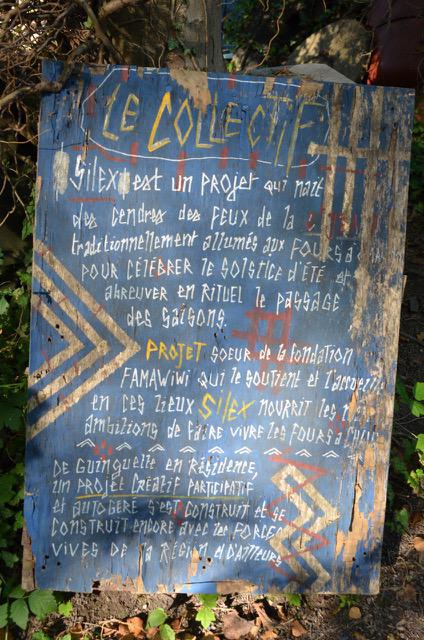 LE COLLECTIF
Silex est un projet qui nait
des cendres des feux de la
traditionnellement allumés aux fours à
pour célébrer le solstice d'été et
abreuver en rituel le passage
des saisons.
Projet soeur de la fondation
Famawiwi qui le soutient et l'accueille
en ces lieux Silex nourrit les
ambitions de faire vivre les fours à chaux
De Guinguette en Résidence,
un projet créatif participatif
et autogéré s'est construit et se
construit encore avec les forces
vives de la région et d'ailleurs